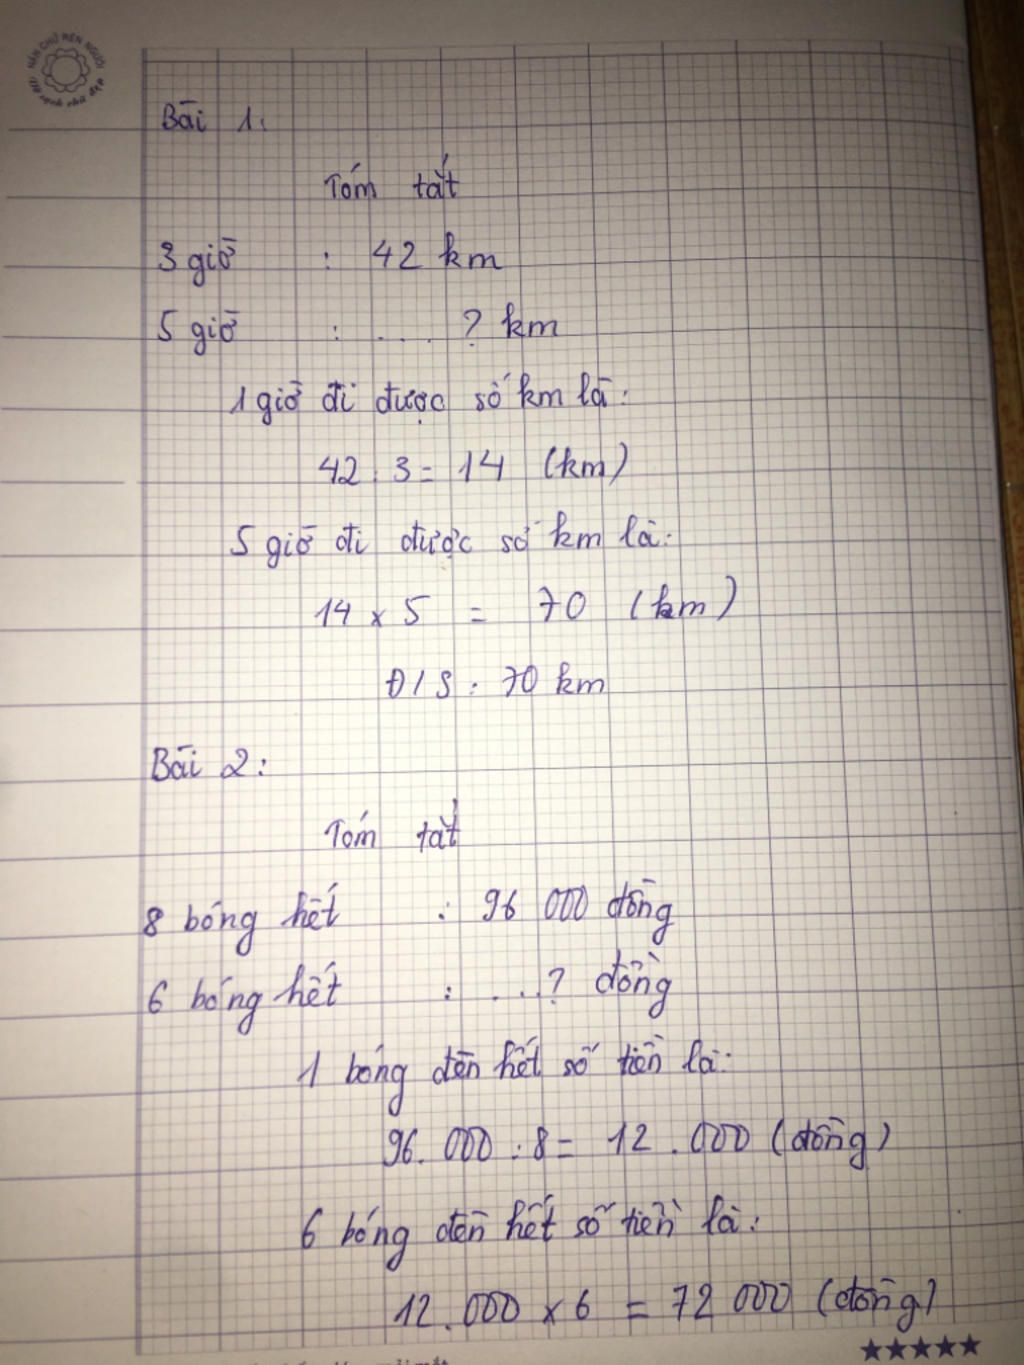 NÉN CHỮ RÈN NGƯỜI
Bài 1:
Tóm tắt
3 giờ : 42 km
5 giờ : .... ? km
1 giờ đi được số km là:
42 : 3 = 14 (km)
5 giờ đi được số km là:
14 x 5 = 70 (km)
Đ/S : 70 km
Bài 2:
Tóm tắt
8 bóng hết : 96 000 đồng
6 bóng hết : ....? đồng
1 bóng đèn hết số tiền là:
96.000 : 8 = 12.000 (đồng)
6 bóng đèn hết số tiền là:
12.000 x 6 = 72 000 (đồng)